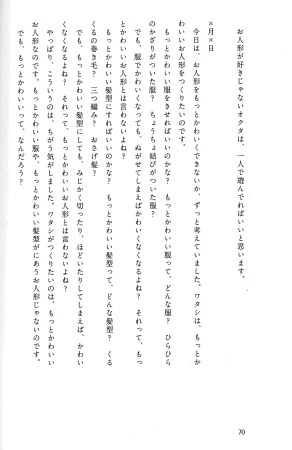 お人形が好きじゃないオクタは、一人で遊んでればいいと思います。
×月×日
今日は、お人形をもっとかわいくできないか、ずっと考えていました。ワタシは、もっとか
わいいお人形をつくりたいのです。
もっとかわいい服をきせればいいのかな？　もっとかわいい服って、どんな服？　ひらひら
のかざりがついた服？　ちょうちょ結びがついた服？
でも、服でかわいくなっても、ぬがせてしまえばかわいくなくなるよね？　それって、もっ
とかわいいお人形とは言わないよね？
もっとかわいい髪型にすればいいのかな？　もっとかわいい髪型って、どんな髪型？　くる
くるの巻き毛？　三つ編み？　おさげ髪？
でも、もっとかわいい髪型にしても、みじかく切ったり、ほどいたりしてしまえば、かわい
くなくなるよね？　それって、もっとかわいいお人形とは言わないよね？
やっぱり、こういうのは、ちがう気がしました。ワタシがつくりたいのは、もっとかわいい
お人形なのです。もっとかわいい服や、もっとかわいい髪型がにあうお人形じゃないのです。
でも、もっとかわいいって、なんだろう？
70